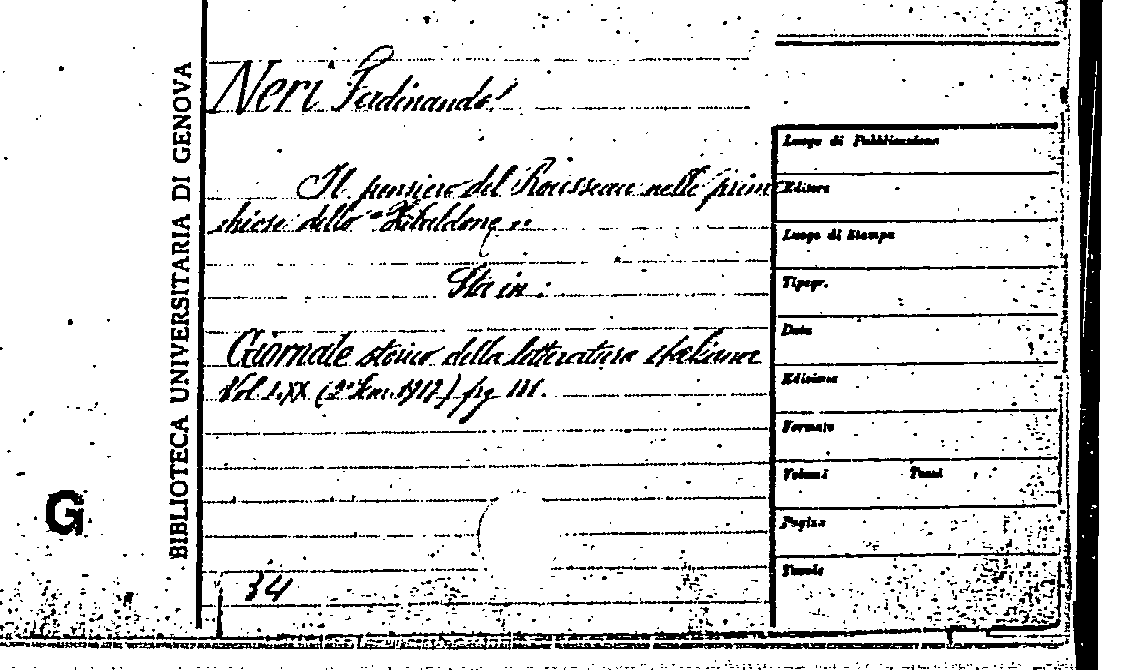 BIBLIOTECA UNIVERSITARIA DI GENOVA
G
Neri Ferdinando!
Il pensiero del Rousseau nelle prime
chiose dello "Zibaldone".
Sta in:
Giornale storico della letteratura italiana
Vol. LXX (2° Sem. 1917) pg 131.
34
Luogo di Pubblicazione
Editore
Luogo di Stampa
Tipogr.
Data
Edizione
Formato
Volumi Tomi
Pagine
Tavole